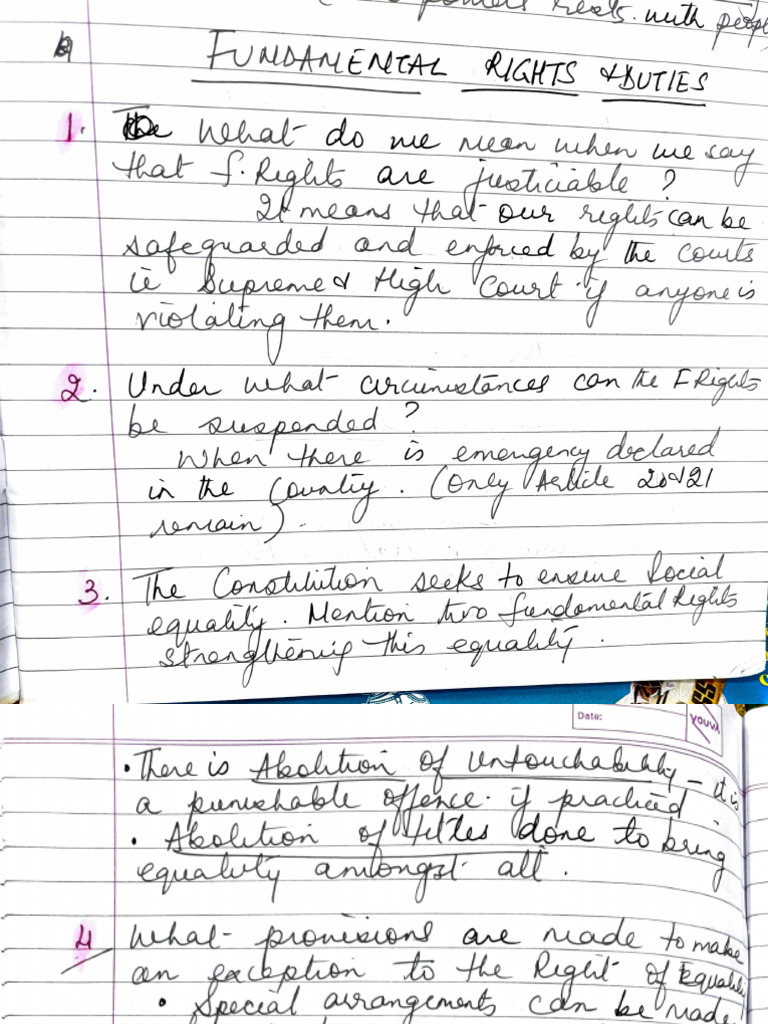 powers rests with people
FUNDAMENTAL RIGHTS & DUTIES
1. What do we mean when we say
that f. Rights are justiciable ?
It means that our rights can be
safeguarded and enforced by the courts
ie Supreme & High Court if anyone is
violating them.
2. Under what circumstances can the F Rights
be suspended ?
When there is emergency declared
in the Country. (Only Article 20 & 21
remain).
3. The Constitution seeks to ensure Social
equality. Mention two fundamental Rights
strengthening this equality.
Date:
• There is Abolition of Untouchability - it is
a punishable offence if practiced.
• Abolition of titles done to bring
equality amongst all.
4 What provisions are made to make
an exception to the Right of Equality
• Special arrangements can be made